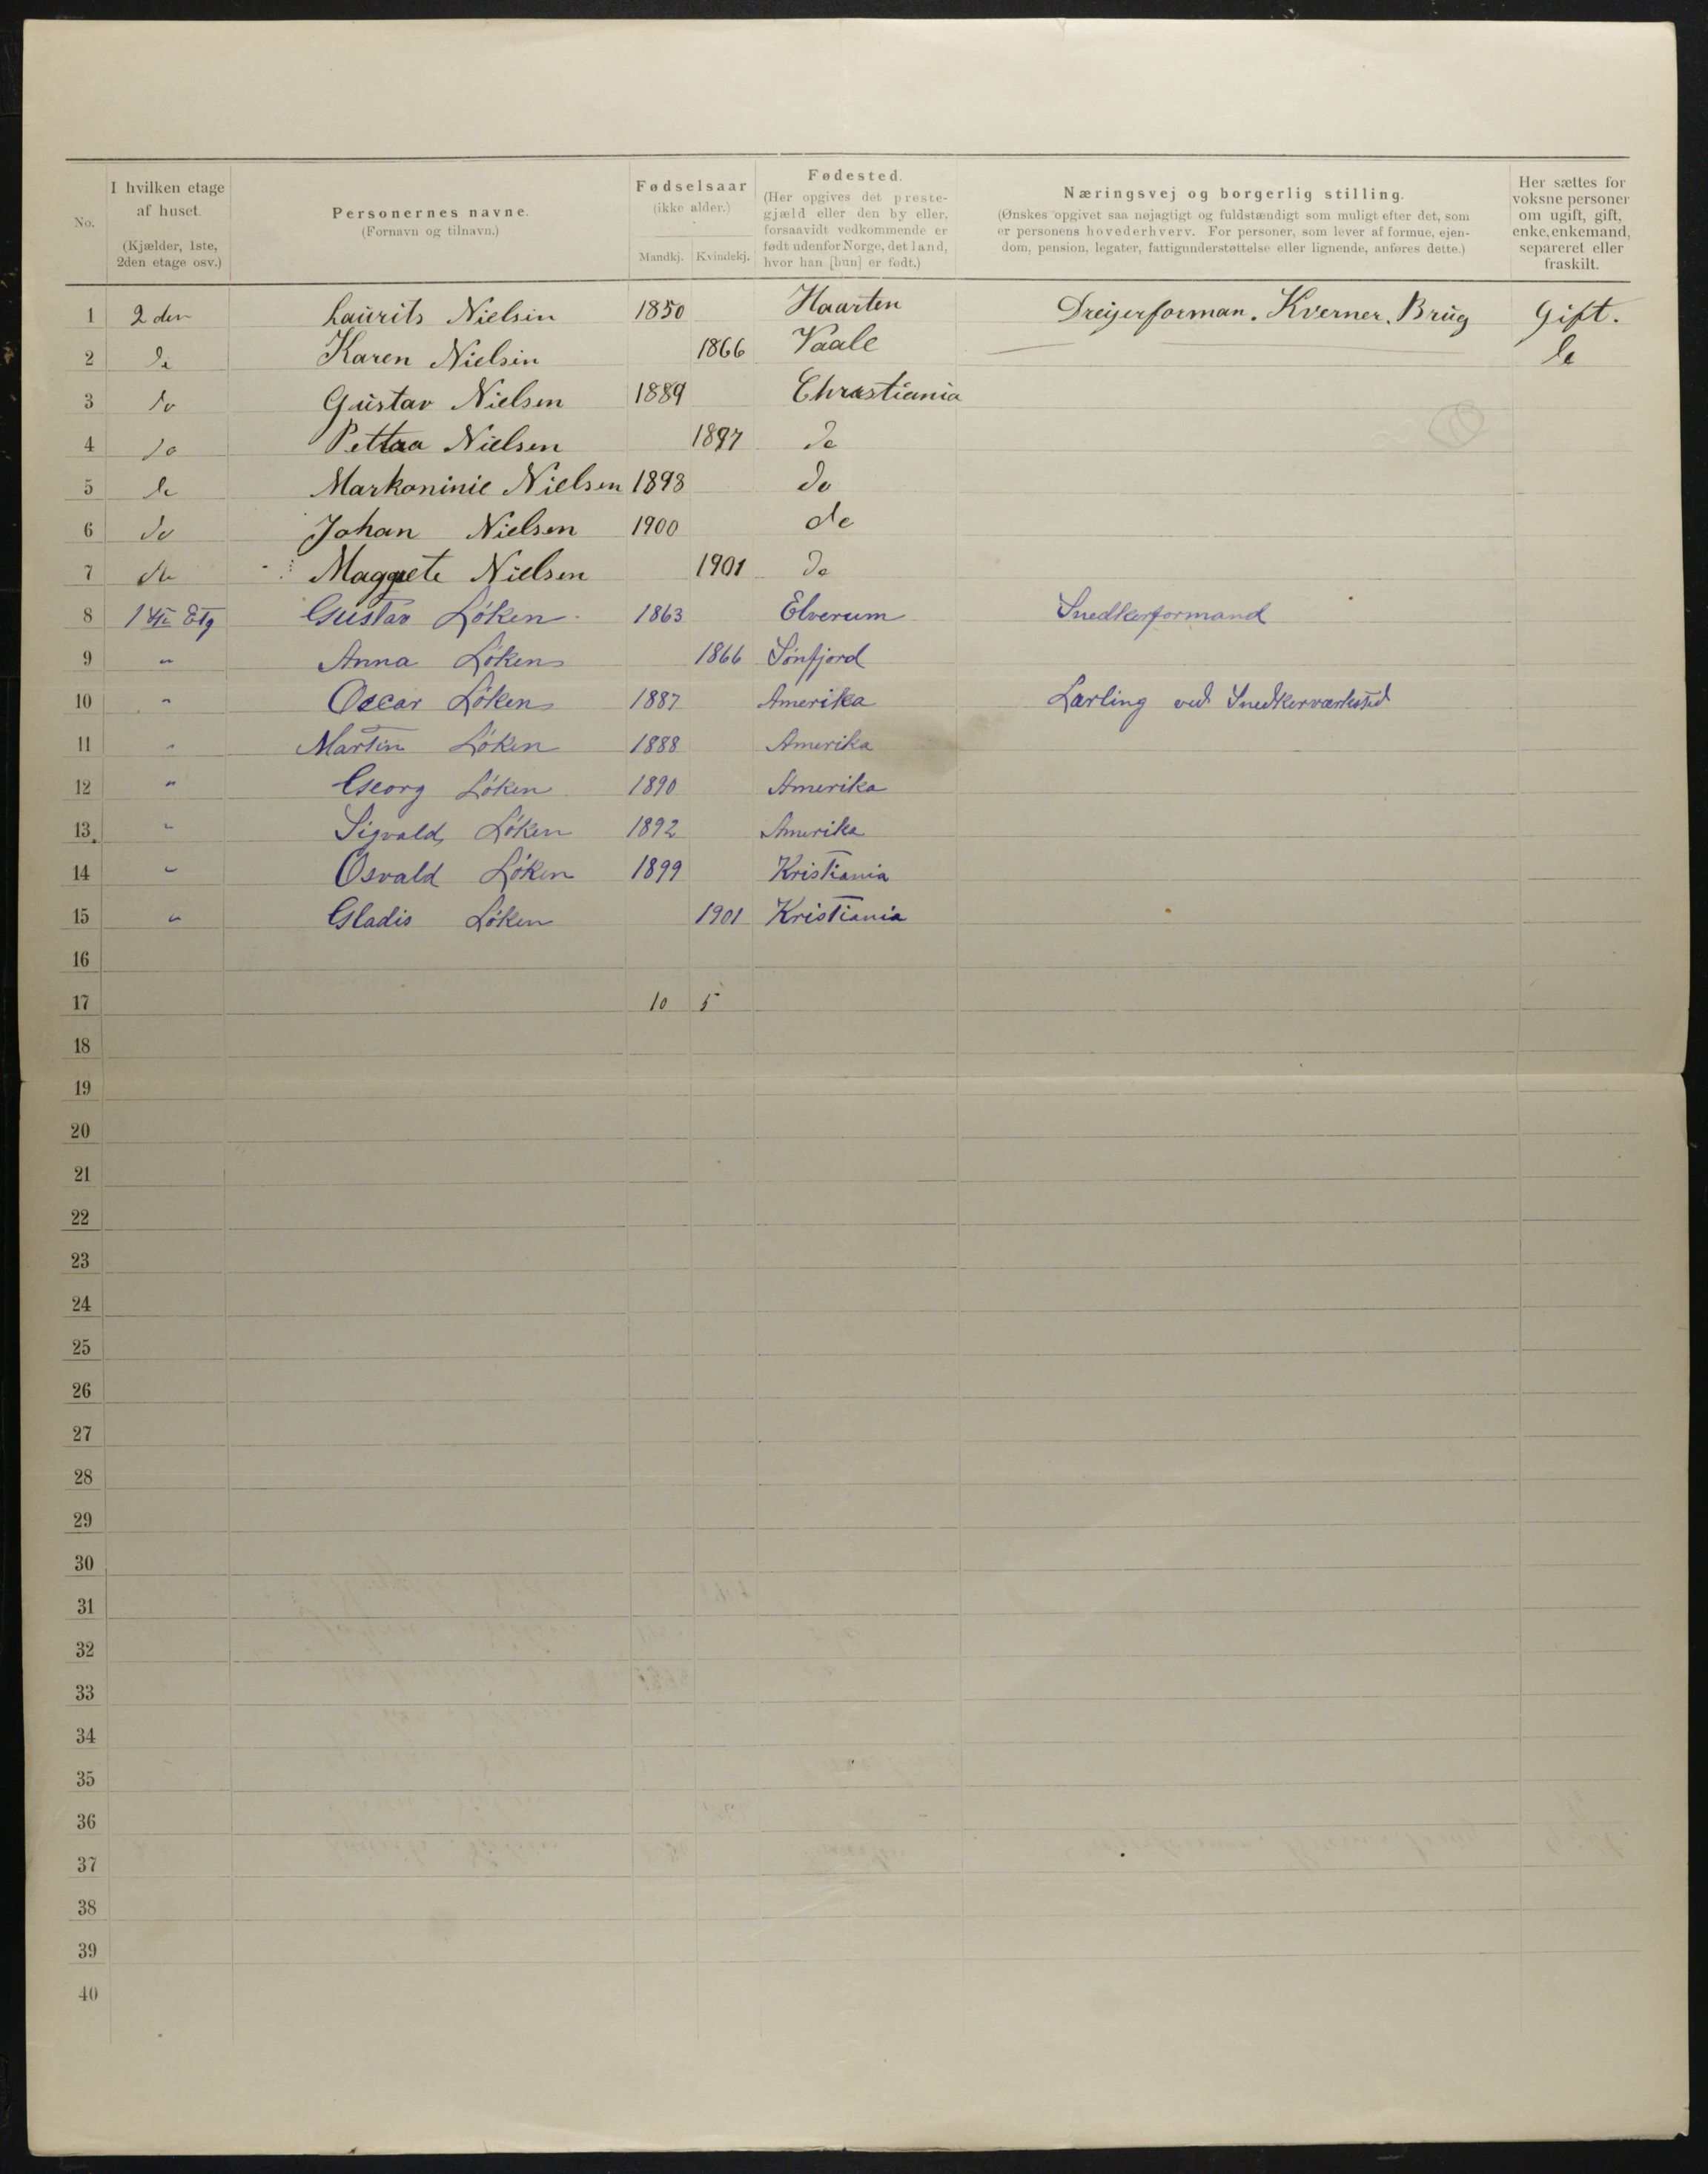 No.
I hvilken etage af huset. (Kjælder, 1ste, 2den etage osv.)
Personernes navne. (Fornavn og tilnavn.)
Fødselsaar (ikke alder.) Mandkj. Kvindekj.
Fødested. (Her opgives det prestegjæld eller den by eller, forsaavidt vedkommende er født udenfor Norge, det land, hvor han [hun] er født.)
Næringsvej og borgerlig stilling. (Ønskes opgivet saa nøjagtigt og fuldstændigt som muligt efter det, som er personens hovederhverv. For personer, som lever af formue, ejendom, pension, legater, fattigunderstøttelse eller lignende, anføres dette.)
Her sættes for voksne personer om ugift, gift, enke, enkemand, separeret eller fraskilt.
1 2den Laurits Nielsin 1850 Haarten Dreijerforman. Kverner. Brug gift.
2 do Karen Nielsin 1866 Vaale do
3 do Gustav Nielsen 1889 Christiania
4 do Nielsen 1897 do
5 do Markoninie Nielsen 1898 do
6 do Johan Nielsen 1900 do
7 do Nielsen 1901 do
8 1ste Etg Gustav Løken 1863 Elverum Snedkerformand
9 " Anna Løken 1866 Sønfjord
10 " Oscar Løken 1887 Amerika Lærling ved Snedkerværksted
11 " Martin Løken 1888 Amerika
12 " Georg Løken 1890 Amerika
13 " Sigvald Løken 1892 Amerika
14 " Osvald Løken 1899 Kristiania
15 " Gladis Løken 1901 Kristiania
16
17 10 5
18
19
20
21
22
23
24
25
26
27
28
29
30
31
32
33
34
35
36
37
38
39
40